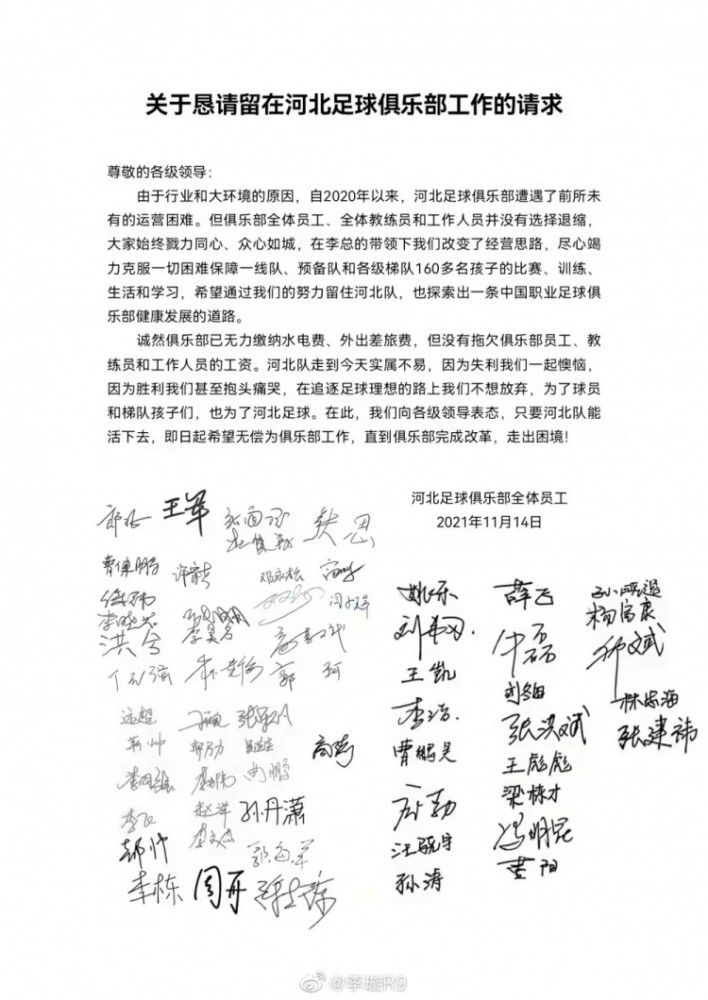 关于恳请留在河北足球俱乐部工作的请求
尊敬的各级领导：
由于行业和大环境的原因，自2020年以来，河北足球俱乐部遭遇了前所未
有的运营困难。但俱乐部全体员工、全体教练员和工作人员并没有选择退缩，
大家始终戮力同心、众心如城，在李总的带领下我们改变了经营思路，尽心竭
力克服一切困难保障一线队、预备队和各级梯队160多名孩子的比赛、训练、
生活和学习，希望通过我们的努力留住河北队，也探索出一条中国职业足球俱
乐部健康发展的道路。
诚然俱乐部已无力缴纳水电费、外出差旅费，但没有拖欠俱乐部员工、教
练员和工作人员的工资。河北队走到今天实属不易，因为失利我们一起懊恼，
因为胜利我们甚至抱头痛哭，在追逐足球理想的路上我们不想放弃，为了球员
和梯队孩子们，也为了河北足球。在此，我们向各级领导表态，只要河北队能
活下去，即日起希望无偿为俱乐部工作，直到俱乐部完成改革，走出困境！
河北足球俱乐部全体员工
2021年11月14日
王军
洪兮
郭 珂
孙丹潇
郝帅
李栋 周丹
姚乐 薛飞
杨富康
王凯
李浩
林忠海
曹鹏昊 张洪斌 张建祎
王彪彪
梁栋才
汪晓宇 冯明昆
孙涛 黄阳
@李璇R9